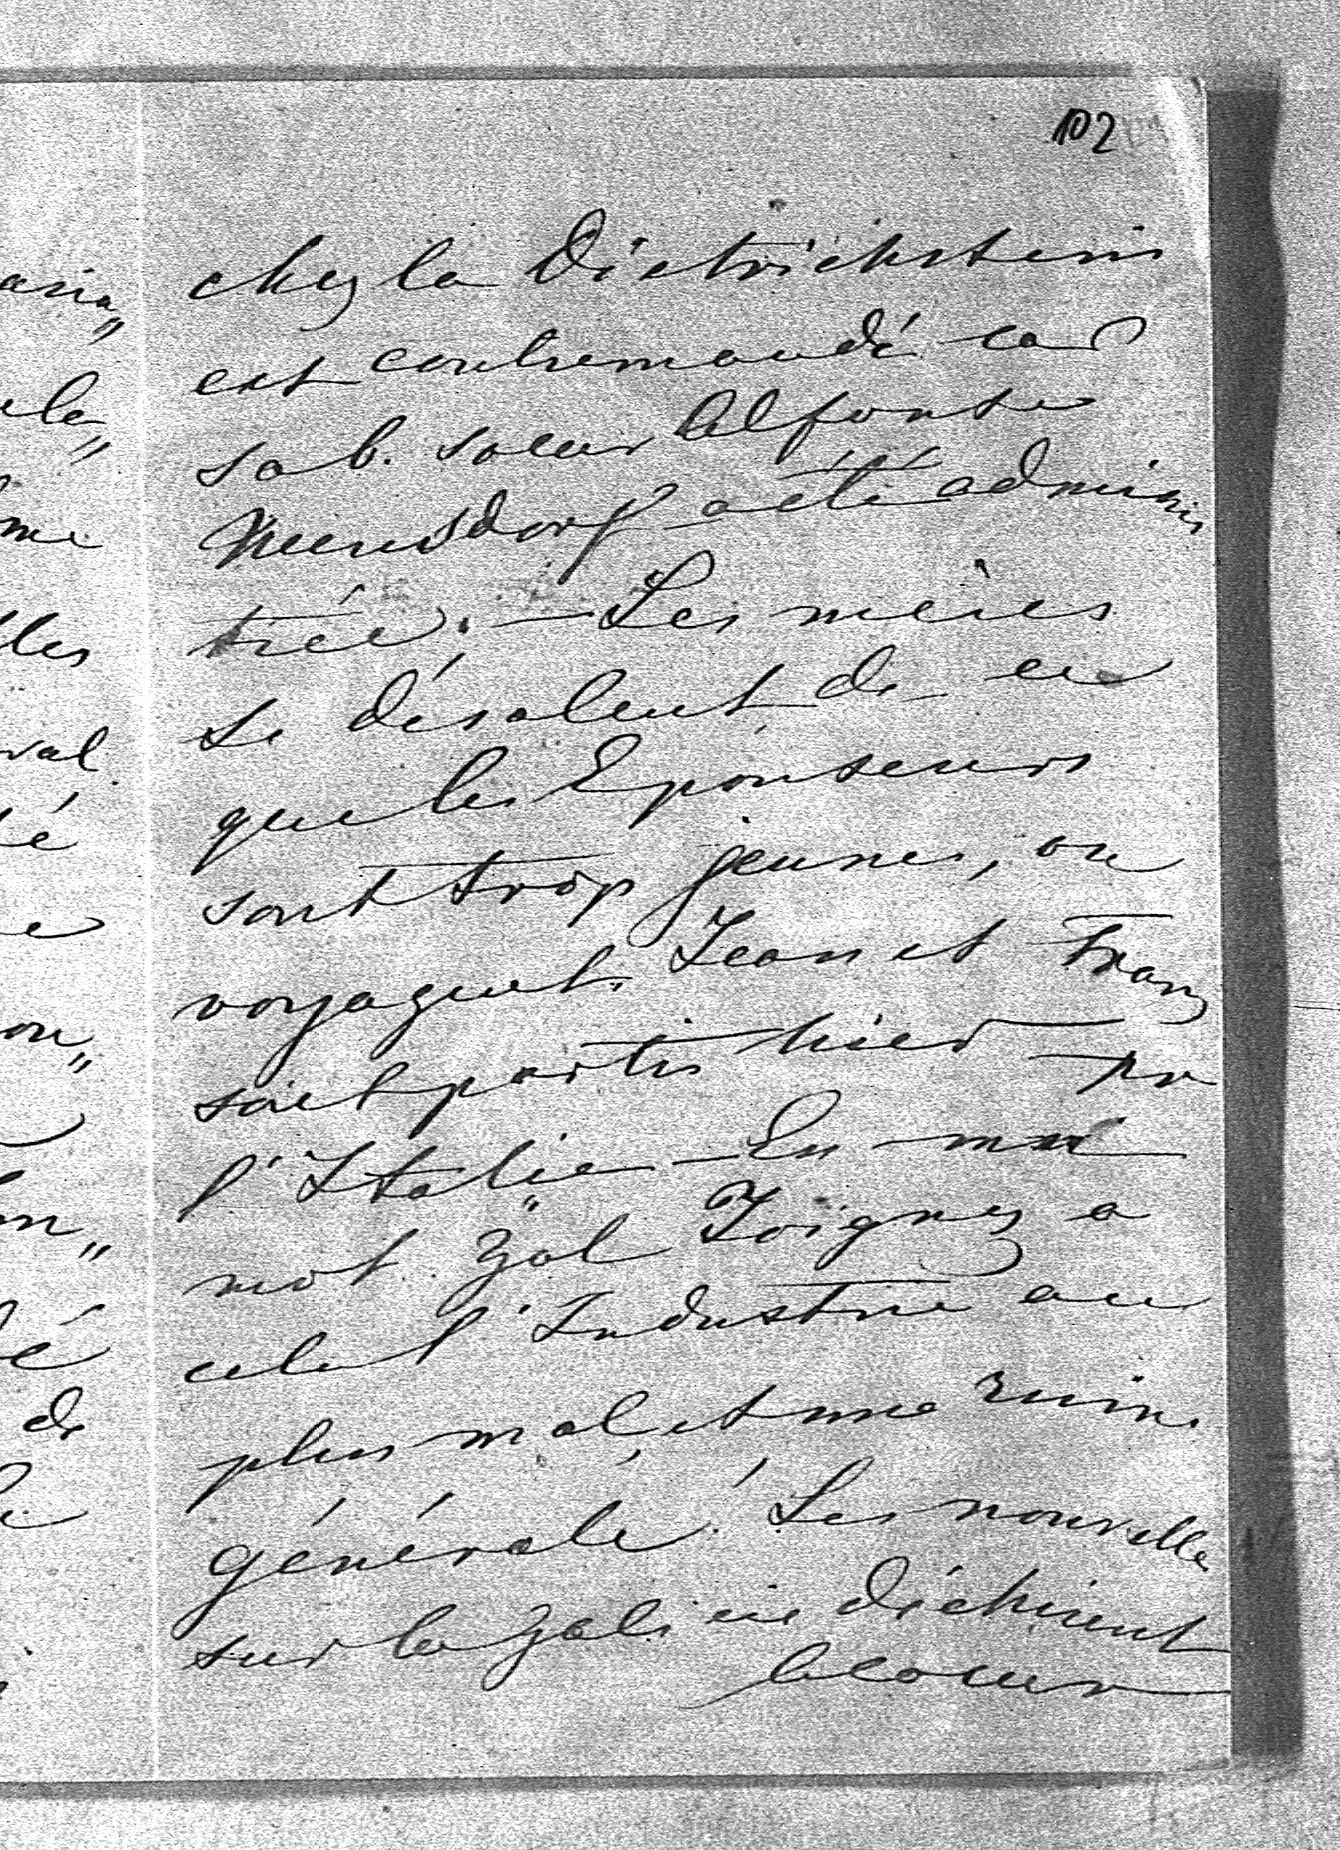 102
chez la Dietrichstein
est contremandé car
sa b. soeur Alfonse
Mensdorff a été adminis
trée. — Les mères
se désolent de ce
que les Epouseurs
sont trop jeunes, ou
voyagent. Jean et Franz
sont partis hier pr
l'Italie — En un
mot Joignez a
cela l'Industrie au
plus mal, et une ruine
générale! Les nouvelles
sur la Galicie déchirent
le coeur
aria„
ela„
me
lles
val.
é
e
on„
é
de